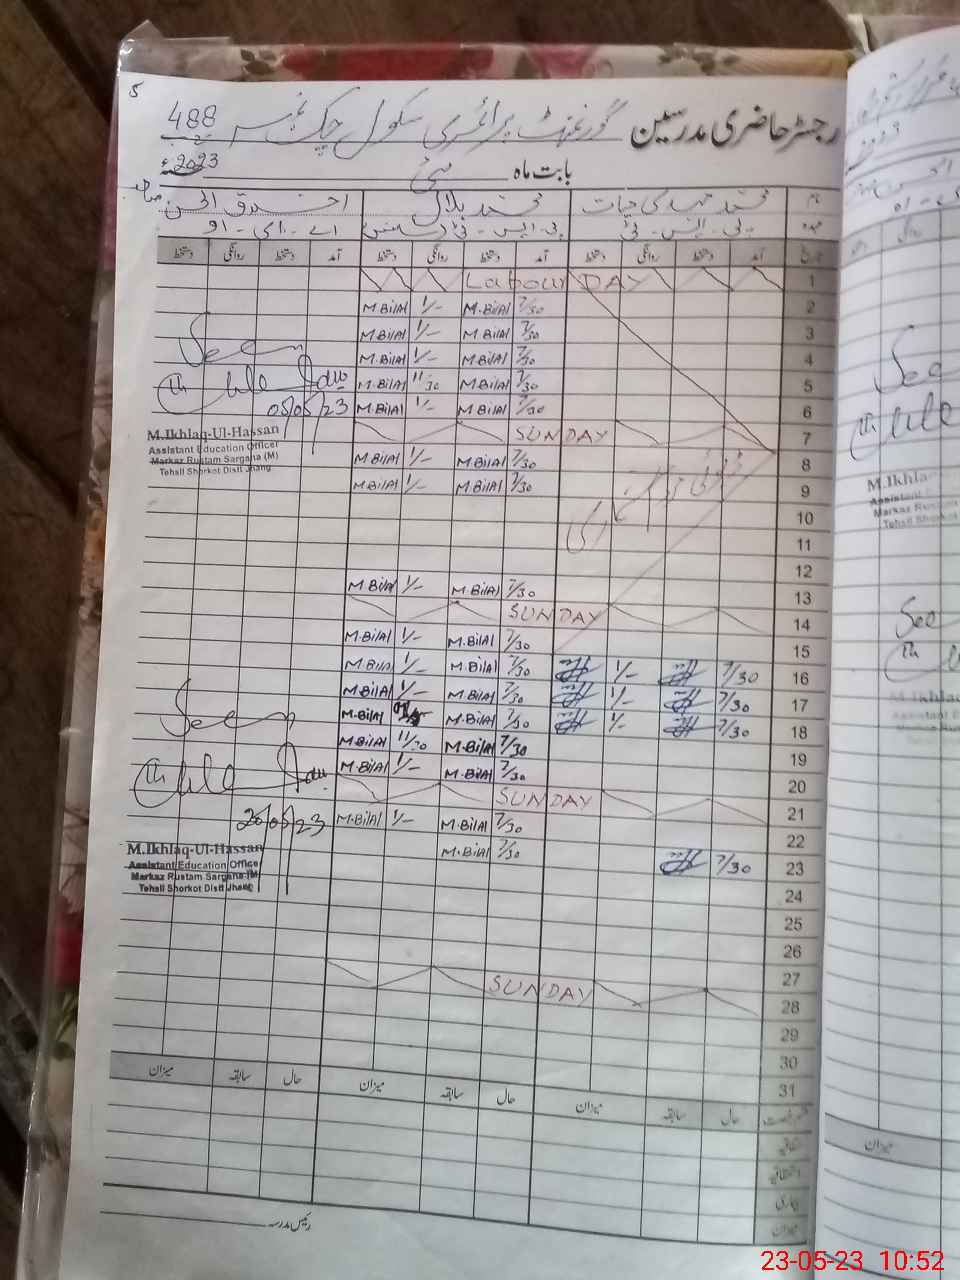 5
رجسٹر حاضری مدرسین گورنمنٹ پرائمری سکول چک نمبر 488
بابت ماہ مئی 2023ء
نام محمد مہدی حیات محمد بلال اخلاق الحسن صاحب
عہدہ پی۔ایس۔ٹی پی۔ایس۔ٹی اے۔ای۔او
تاریخ آمد دستخط روانگی دستخط آمد دستخط روانگی دستخط آمد دستخط روانگی دستخط
1 Labour DAY
2 7/30 M.Bilal 1/- M.Bilal
3 7/30 M.Bilal 1/- M.Bilal
4 7/30 M.Bilal 1/- M.Bilal
5 7/30 M.Bilal 11/30 M.Bilal
6 7/30 M.Bilal 1/- M.Bilal
7 SUNDAY
8 7/30 M.Bilal 1/- M.Bilal
9 7/30 M.Bilal 1/- M.Bilal
10
11
12
13 7/30 M.Bilal 1/- M.Bilal
14 SUNDAY
15 7/30 M.Bilal 1/- M.Bilal
16 7/30 1/- 7/30 M.Bilal 1/- M.Bilal
17 7/30 1/- 7/30 M.Bilal 1/- M.Bilal
18 7/30 1/- 7/30 M.Bilal M.Bilal
19 7/30 M.Bilal 11/30 M.Bilal
20 7/30 M.Bilal 1/- M.Bilal
21 SUNDAY
22 7/30 M.Bilal 1/- M.Bilal
23 7/30 7/30 M.Bilal
24
25
26
27
28 SUNDAY
29
30
31
Seen
05/05/23
M.Ikhlaq-Ul-Hassan
Assistant Education Officer
Markaz Rustam Sargana (M)
Tehsil Shorkot Distt Jhang
Seen
20/05/23
M.Ikhlaq-Ul-Hassan
Assistant Education Office
Markaz Rustam Sargana (M
Tehsil Shorkot Distt Jhang
حال سابقہ میزان حال سابقہ میزان حال سابقہ میزان
اتفاقیہ
استحقاقیہ
بیماری
میزان
رئیس مدرسہ
See
M.Ikhla
Assistant E
Markaz Rustam
Tehsil Shorkot
See
M.Ikhlaq
میزان
23-05-23 10:52